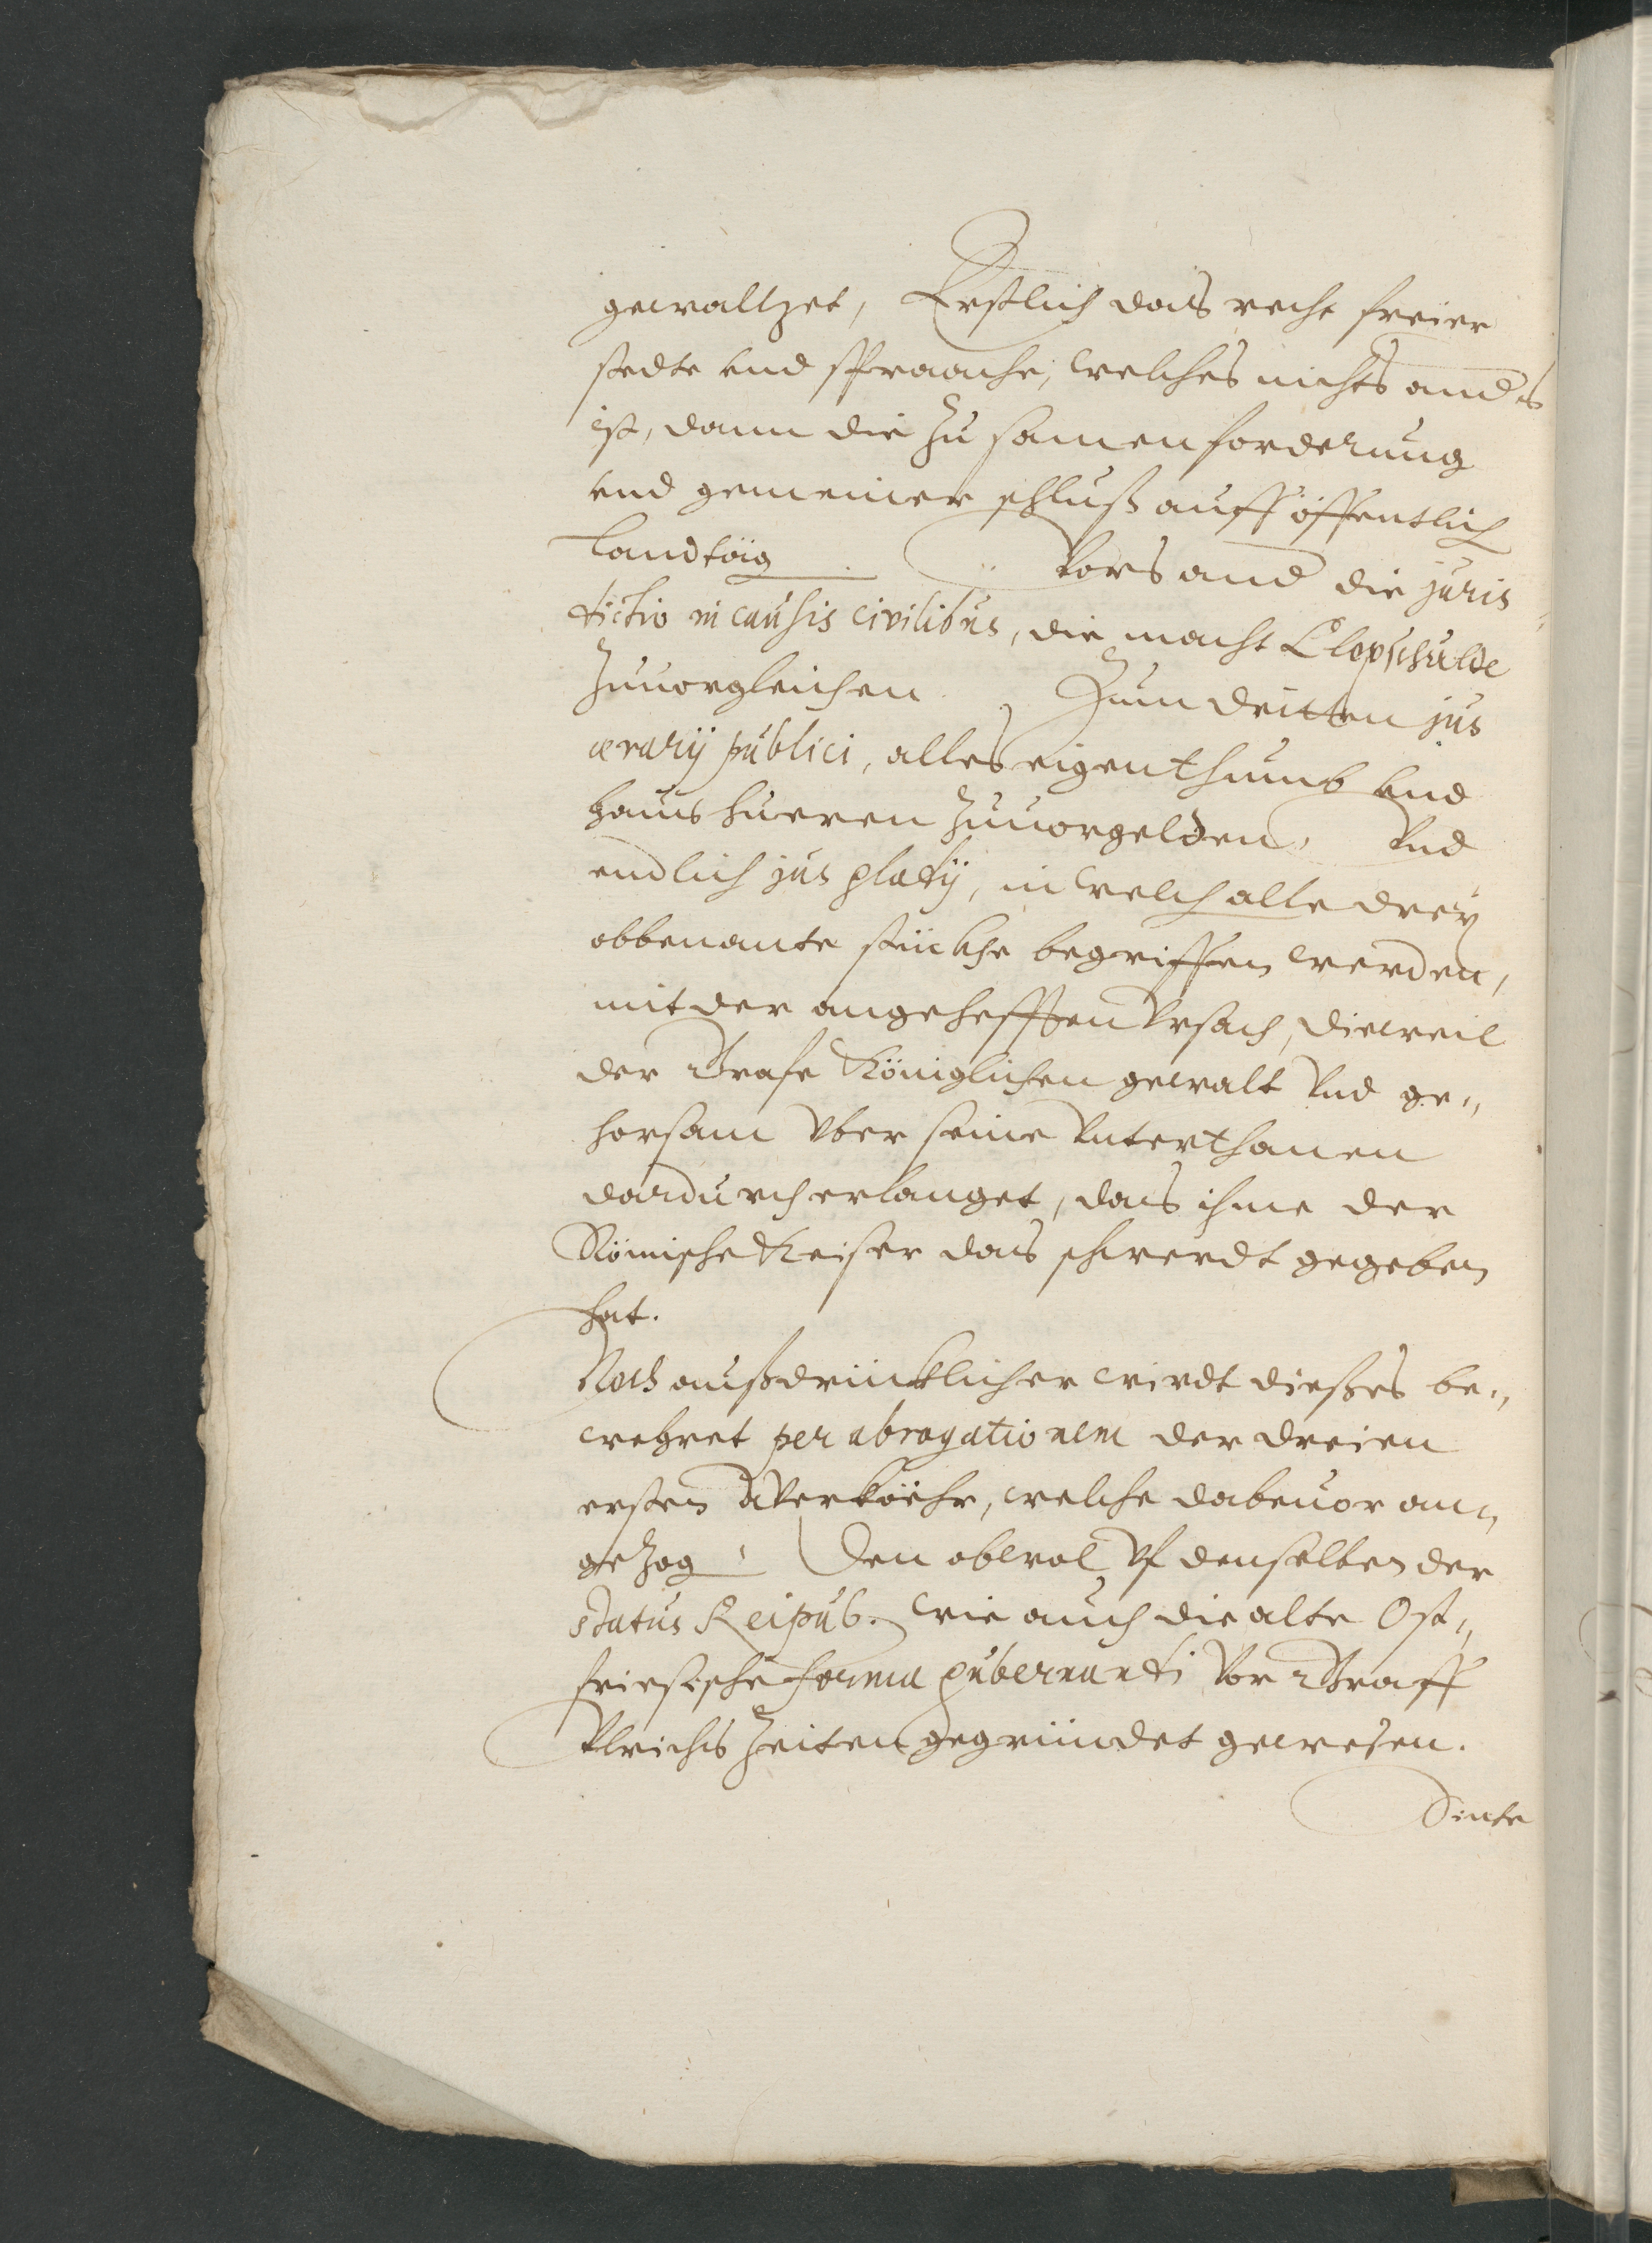 gewaltzet, Erstlich das recht freier
stedte vnd sprraache, welches nichts and's
ist, dann die zu samenforderung
vnd gemeiner schluß auff öffentlich
landtäg. Vors and die juris
dictio in causis civilibus, die macht Clopschulde
zuuorgleichen. Zum dritten jus
ærarij publici, alles eigenthumb vnd
haus hueren zuuorgelden, Vnd
endlich jus gladij, in welch alle drey
obbenante stückhe begriffen werden,
mit der angehefften vrsach, dieweil
der Grafe Königlichen gewalt vnd ge„
horsam vber seine vnterthanen
dardurch erlanget, das ihme der
Römische Keiser das schwerdt gegeben
hat.
Noch außdrücklicher wirdt dießes be„
wehret per abrogationem der dreien
ersten Werköhr, welche dabeuor an„
gezog, Den obwol vf denselben der
status Reipub. wie auch die alte Ost„
friesische forma gubernandi vor Graff
Vlrichs zeiten gegründet gewesen.
Sinte